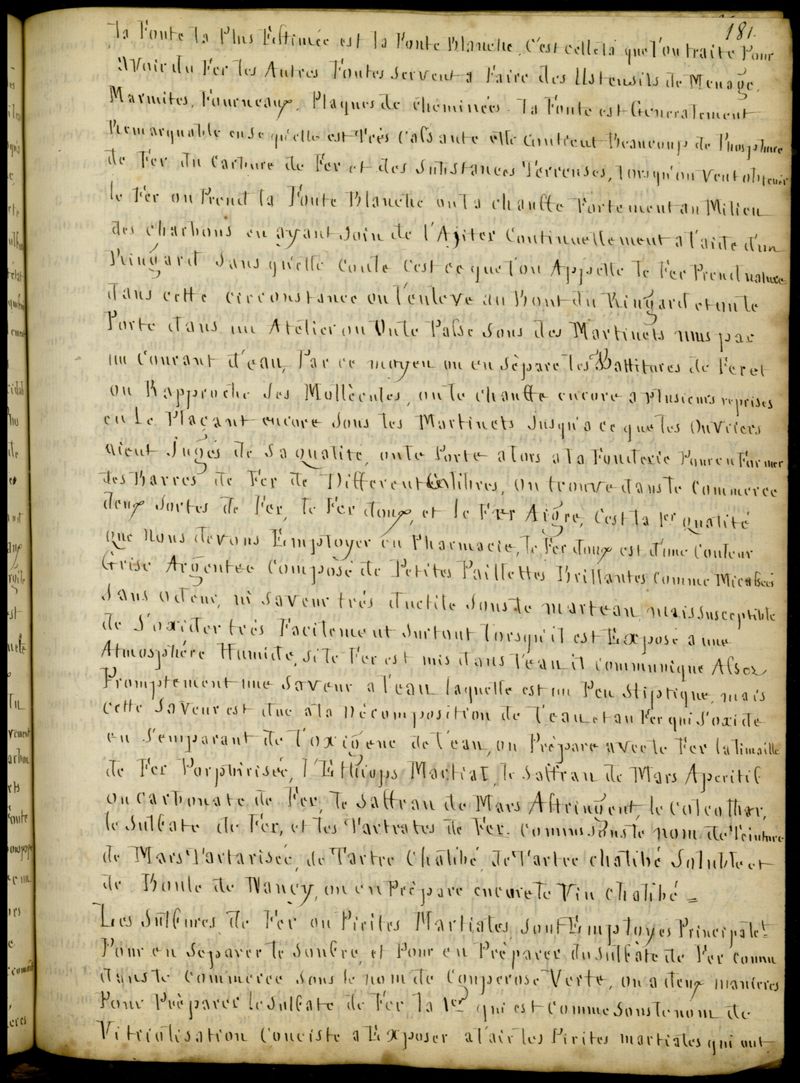 181.
la Fonte la Plus Estimée est la Fonte Blanche. C'est cellela que l'on traite Pour
Avoir du Fer les Autres Fontes servent a Faire des Ustensils de Menage,
Marmites, Fourneaux, Plaques de cheminées. la Fonte est Generalement
Remarquable en se qu'elle est Très Cassante elle Contient Beaucoup de Phosphure
de Fer du Carbure de Fer et des Substances Terreuses, lorsqu'on veut obtenir
le Fer on Prend la Fonte Blanche on la chauffe Fortement au Milieu
des charbons en ayant soin de l'Agiter Continuellement a l'aide d'un
Ringard sans qu'elle Coule C'est ce que l'on Appelle le Fer Prend nature
dans cette circonstance on l'enleve au Bout du Ringard et on le
Porte dans un Atelier ou On le Passe sous des Martinets mus par
un Courant d'eau, Par ce moyen on en Sèpare les Battitures de Fer et
on Rapproche ses Mollècules, on le chauffe encore a Plusieurs reprises
en Le Plaçant encore sous les Martinets Jusqu'a ce que les Ouvriers
aient Jugés de sa qualité, on le Porte alors a la Fonderie Pour en Former
des Barres de Fer de Different Calibres, On trouve dans le Commerce
deux sortes de Fer, le Fer doux, et le Fer Aigre, C'est la 1er qualité
que Nous devons Employer en Pharmacie, le Fer doux est d'une Couleur
Grise Argentée Composé de Petites Paillettes Brillantes Comme Micacées
sans odeur, ni saveur très ductile sous le marteau mais susceptible
de s'oxider très Facilement surtout lorsqu'il est Exposé a une
Atmosphère Humide, si le Fer est mis dans l'eau il Communique Assez
Promptement une saveur a l'eau laquelle est un Peu stiptique, mais
Cette saveur est due a la Décomposition de l'eau et au Fer qui s'oxide
en s'emparant de l'oxigene de l'eau, on Prépare avec le Fer la limaille
de Fer Porphirisée, l'Ethiops Martial, le saffran de Mars Aperitif
ou Carbonate de Fer, le saffran de Mars Astringent, le Colcothar,
le Sulfate de Fer, et les Tartrates de Fer. Connus sous le nom de Teinture
de Mars Tartarisée, de Tartre Chalibé, de Tartre chalibé Soluble et
de Boule de Nancy, on en Prépare encore le Vin Chalibé =
Les Sulfures de Fer ou Pirites Martiales, sont Employes Principalet
Pour en Séparer le Soufre, et Pour en Préparer du Sulfate de Fer Connu
dans le Commerce sous le nom de Couperose Verte, on a deux manieres
Pour Preparer le Sulfate de Fer la 1er qui est Comme sous le nom de
Vitriolisation Conciste a Exposer a l'air les Pirites martiales qui ont